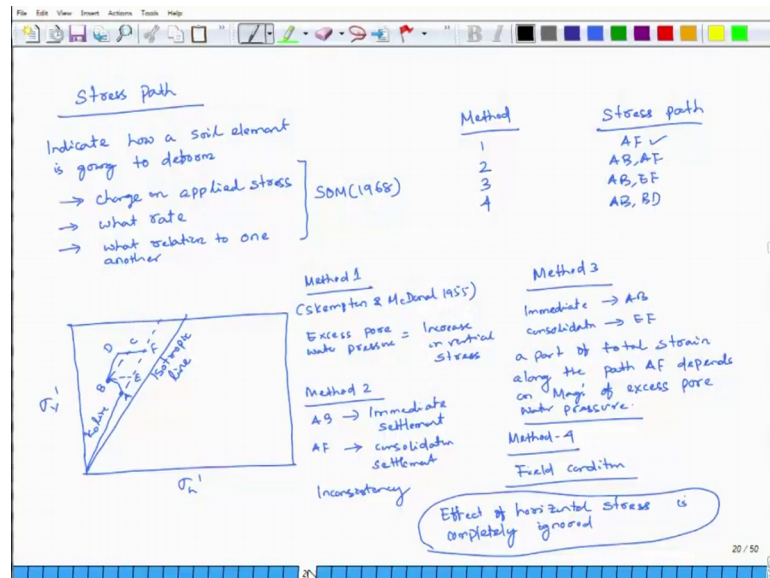 File Edit View Insert Actions Tools Help
B I
Stress path
Indicate how a soil element
is going to deform
→ change in applied stress
→ what rate
→ what relation to one
another
SOM (1968)
Method Stress path
1 AF ✓
2 AB, AF
3 AB, EF
4 AB, BD
σv'
σh'
D C F
B E
A
Ko line
Isotropic
line
Method 1
(Skempton & McDonal 1955)
Excess pore
water pressure = Increase
in vertical
stress
Method 2
AB → Immediate
settlement
AF → consolidation
settlement
Inconsistency
Method 3
Immediate → AB
consolidatn → EF
a part of total strain
along the path AF depends
on Magn of excess pore
water pressure.
Method-4
Field conditn
Effect of horizontal stress is
completely ignored
20 / 50